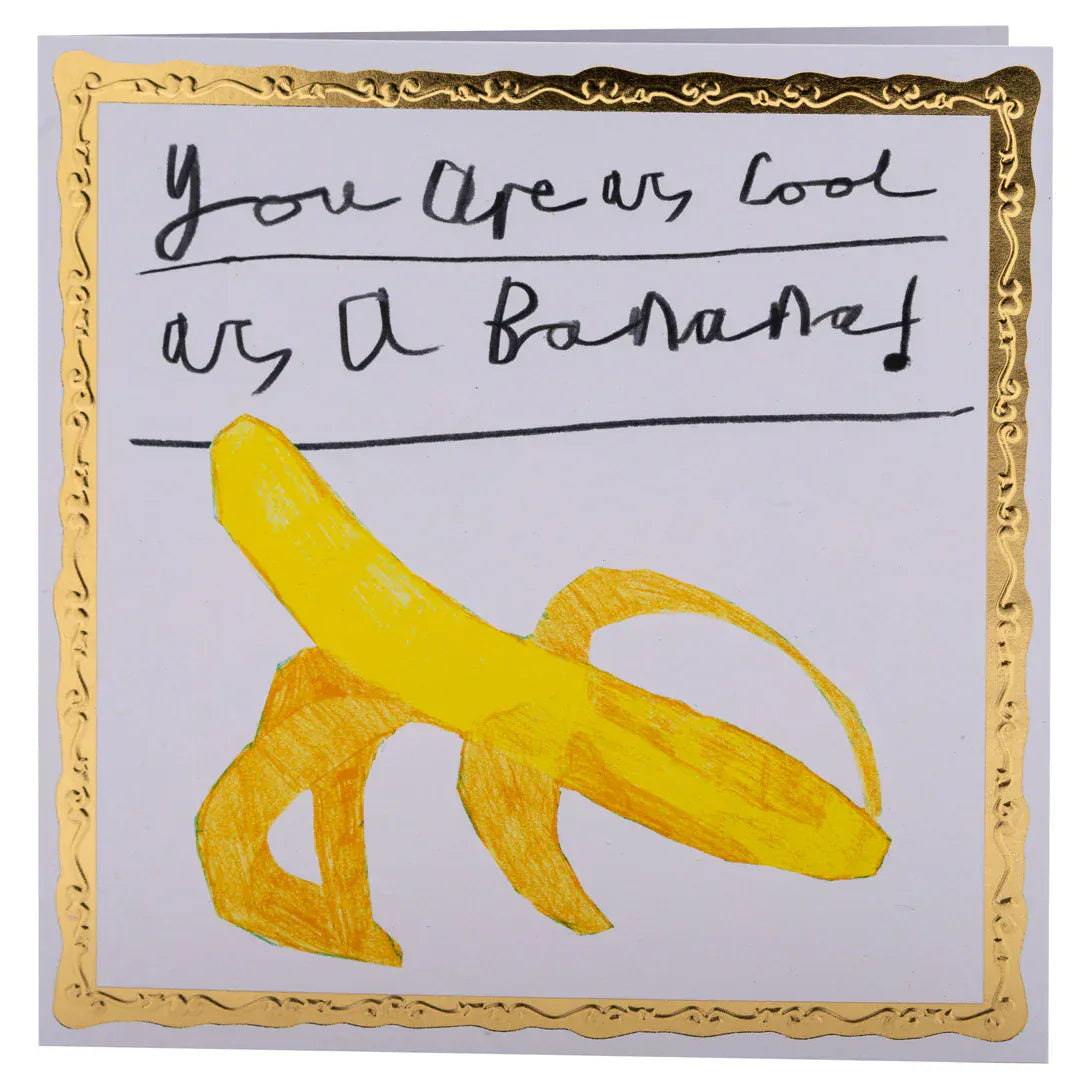 You Are as Cool
as A Banana!